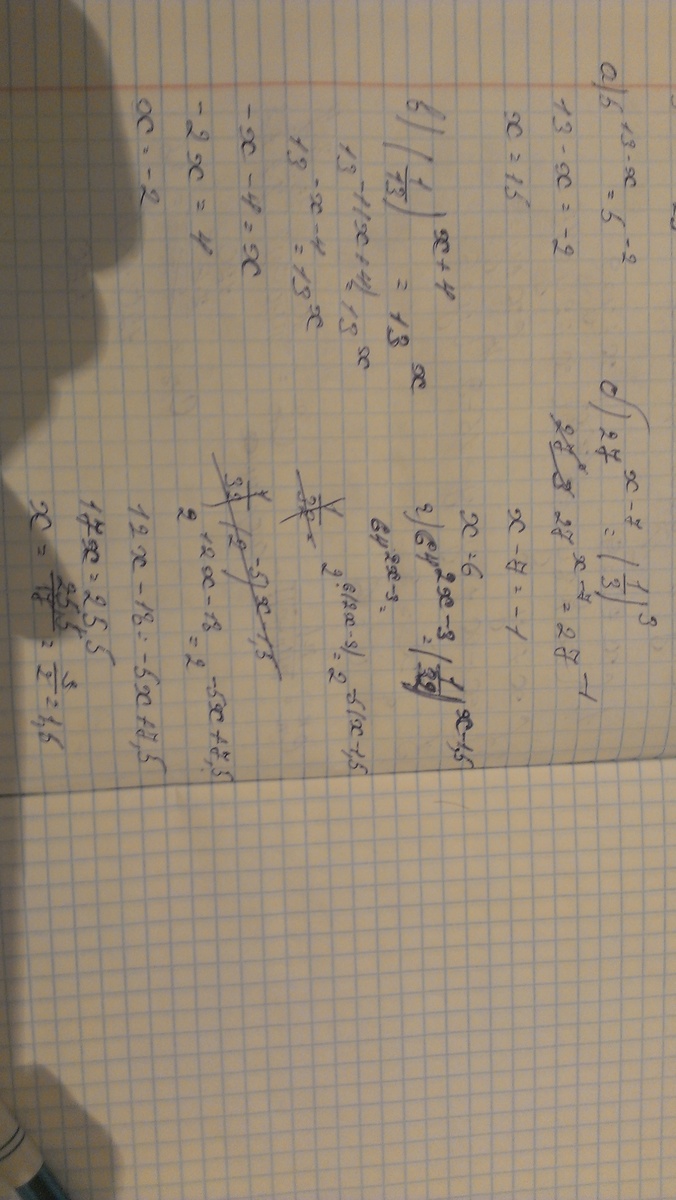 а) 5^{13-x} = 5^{-2}
13 - x = -2
x = 15
б) 27^{x-7} = (1/3)^3
27^{x-7} = 27^{-1}
x - 7 = -1
x = 6
в) (1/13)^{x+4} = 13^x
13^{-1(x+4)} = 13^x
13^{-x-4} = 13^x
-x - 4 = x
-2x = 4
x = -2
г) 64^{2x-3} = (1/32)^{x-1,5}
64^{2x-3} =
2^{6(2x-3)} = 2^{-5(x-1,5}
2^{12x-18} = 2^{-5x+7,5}
12x - 18 = -5x + 7,5
17x = 25,5
x = 25,5/17 = 3/2 = 1,5